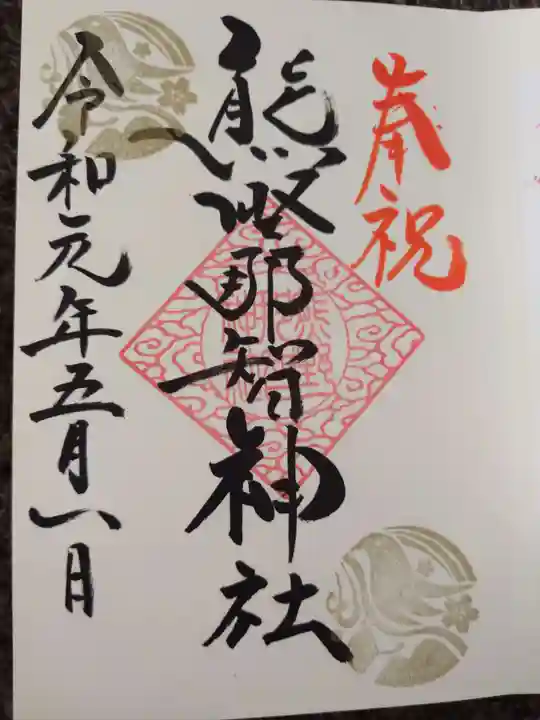 奉祝
熊野那智神社
令和元年五月一日